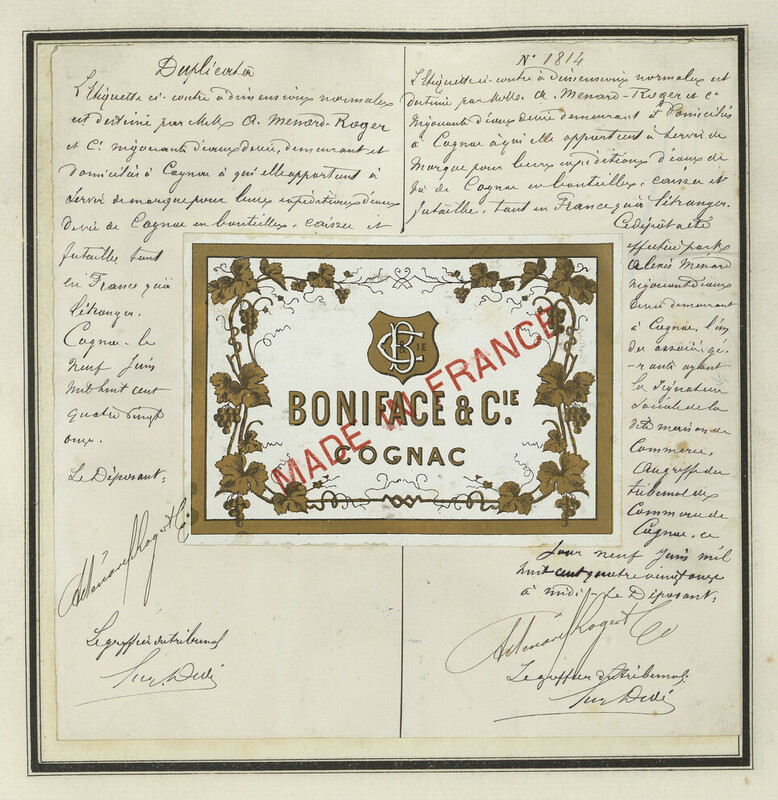 Duplicata
L'Etiquette ci-contre à dimensions normales
est destiné par MM. A. Menard-Roger
et Cie négociants d'eaux de vie, demeurant et
domiciliés à Cognac à qui elle appartient à
servir de marque pour leurs expéditions d'eaux
de vie de Cognac en bouteilles, caisses et
futailles tant
en France qu'à
l'étranger.
Cognac le
neuf Juin
mil huit cent
quatre vingt
onze.
Le Déposant:
A. Ménard Roger & Co
Le greffier du tribunal
N° 1814
L'Etiquette ci-contre à dimensions normales est
destiné par MM. A. Menard-Roger et Cie
négociants d'eaux de vie demeurant et domiciliés
à Cognac à qui elle appartient à servir de
marque pour leurs expéditions d'eaux de
vie de Cognac en bouteilles, caisses et
futailles, tant en France qu'à l'étranger.
Ce dépôt a été
effectué par M.
Alexis Ménard
négociant d'eaux
de vie demeurant
à Cognac, l'un
des associés gé-
rants ayant
la signature
sociale de la
dite maison de
Commerce,
au greffe du
tribunal de
Commerce de
Cognac, ce
jour neuf Juin mil
huit cent quatre vingt onze
à midi. Le Déposant:
A. Ménard Roger & Co
Le greffier du tribunal:
BC & CIE
BONIFACE & CIE.
COGNAC
MADE IN FRANCE